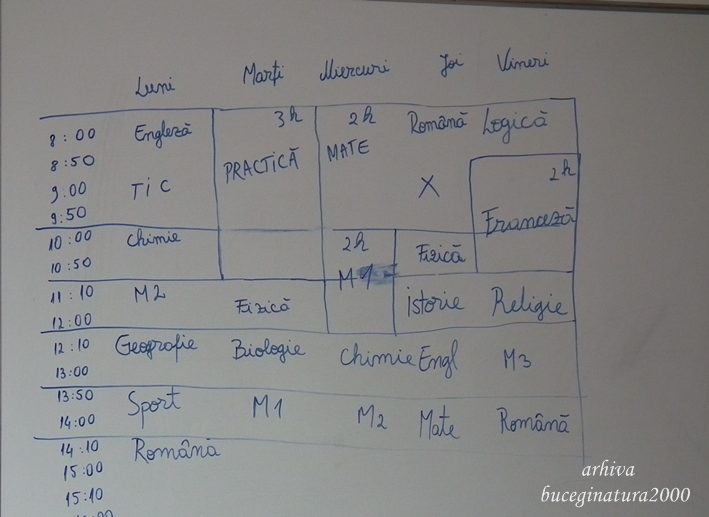 Luni Marți Miercuri Joi Vineri
8:00 Engleză 3h 2h Română Logică
8:50 PRACTICĂ MATE
9:00 TIC X 2h
9:50 Franceză
10:00 Chimie 2h Fizică
10:50
11:10 M2 Fizică istorie Religie
12:00
12:10 Geografie Biologie Chimie Engl M3
13:00
13:50 Sport M1 M2 Mate Română
14:00
14:10 Română
15:00
15:10
arhiva
buceginatura2000